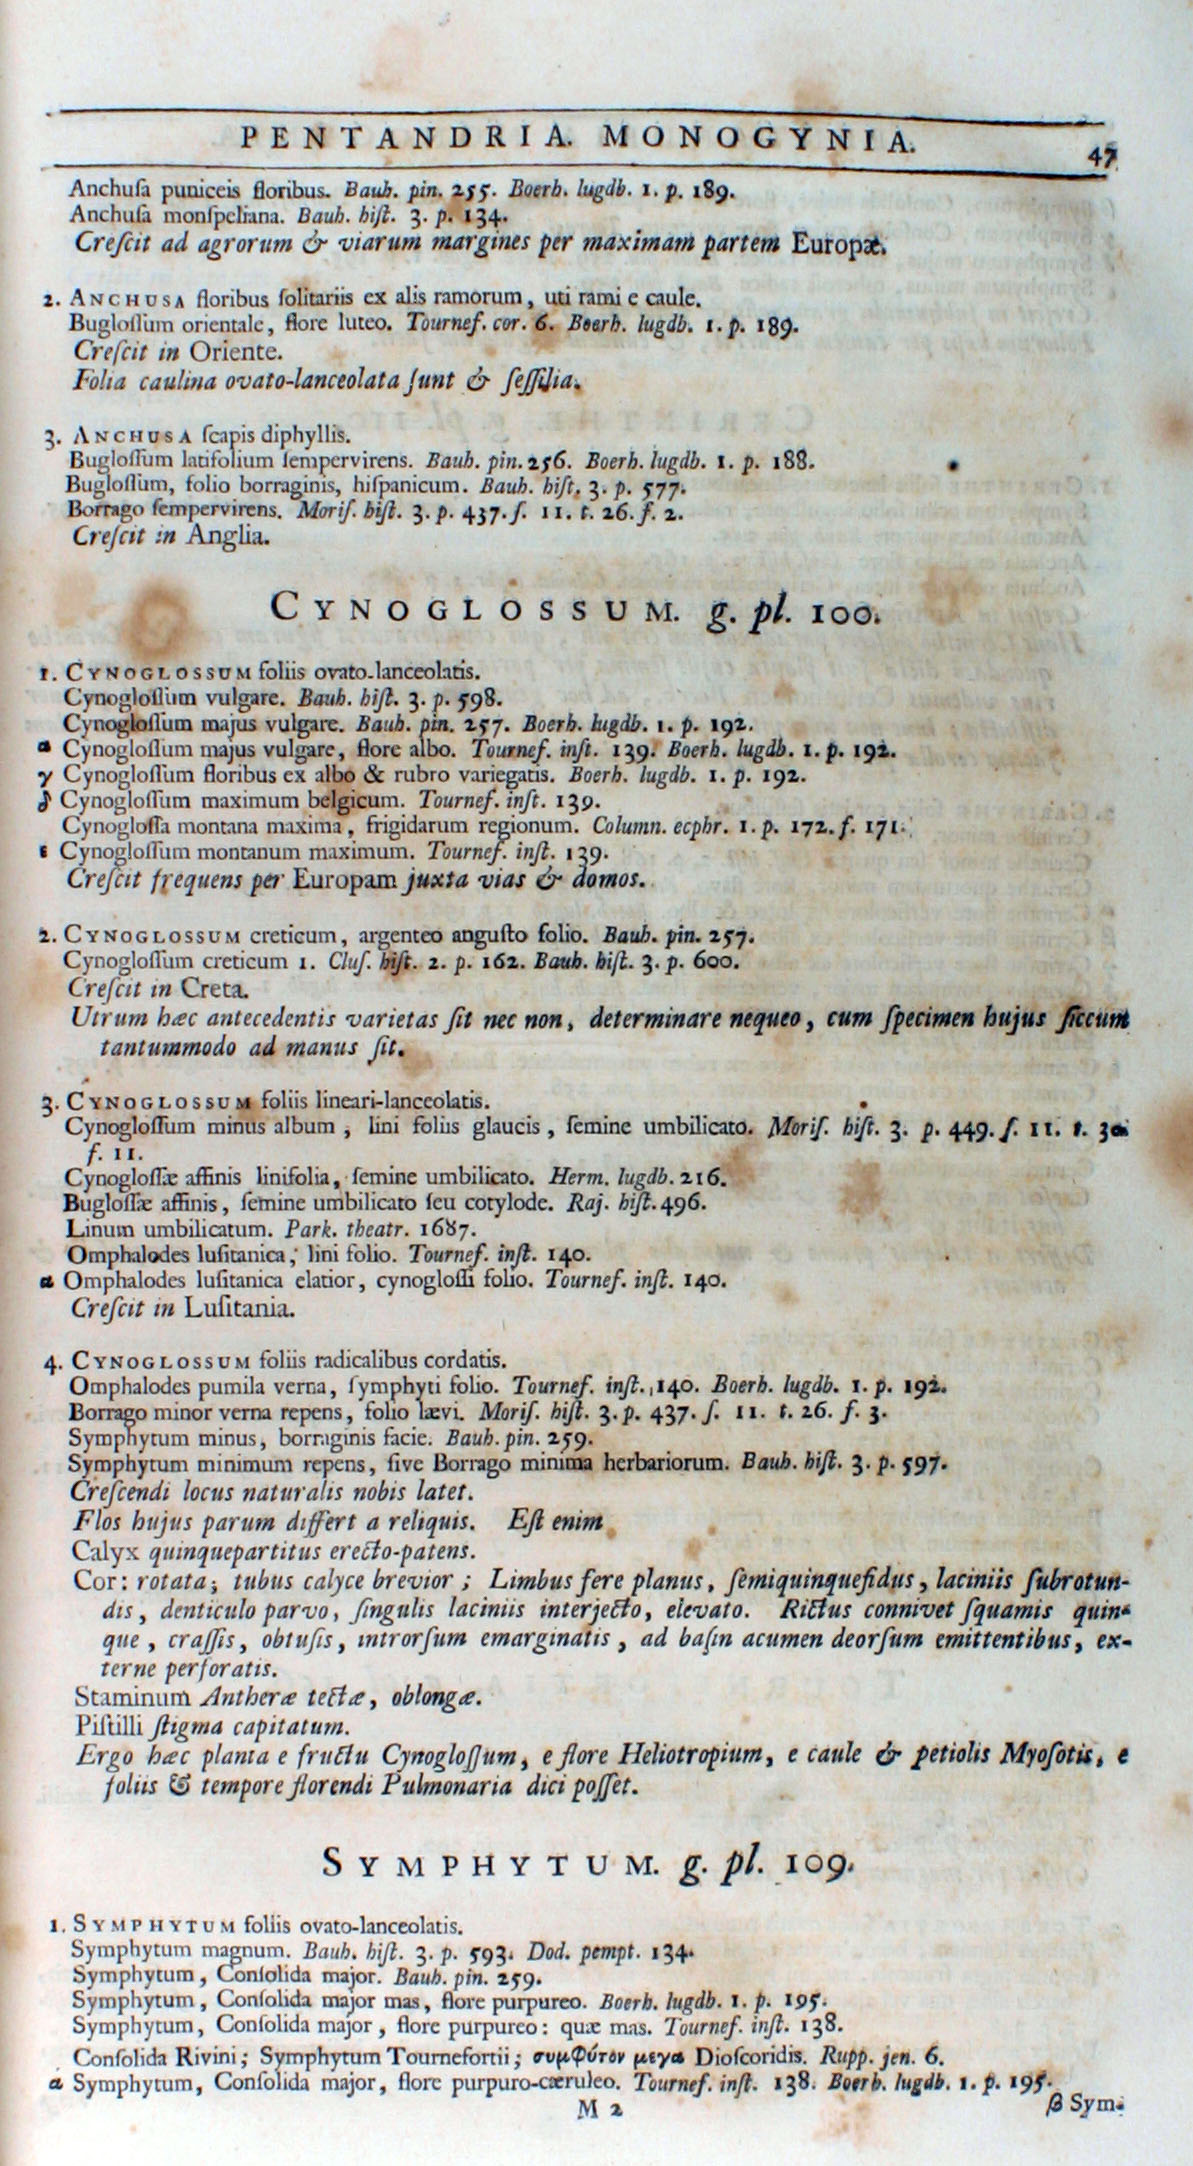 PENTANDRIA. MONOGYNIA. 47
Anchuſa puniceis floribus. Bauh. pin. 255. Boerh. lugdb. 1. p. 189.
Anchuſa monſpeliana. Bauh. hiſt. 3. p. 134.
Creſcit ad agrorum & viarum margines per maximam partem Europæ.
2. ANCHUSA floribus ſolitariis ex alis ramorum, uti rami e caule.
Bugloſſum orientale, flore luteo. Tournef. cor. 6. Boerh. lugdb. 1. p. 189.
Creſcit in Oriente.
Folia caulina ovato-lanceolata ſunt & ſeſſilia.
3. ANCHUSA ſcapis diphyllis.
Bugloſſum latifolium ſempervirens. Bauh. pin. 256. Boerh. lugdb. 1. p. 188.
Bugloſſum, folio borraginis, hiſpanicum. Bauh. hiſt. 3. p. 577.
Borrago ſempervirens. Moriſ. hiſt. 3. p. 437. ſ. 11. t. 26. f. 2.
Creſcit in Anglia.
CYNOGLOSSUM. g. pl. 100.
1. CYNOGLOSSUM foliis ovato-lanceolatis.
Cynogloſſum vulgare. Bauh. hiſt. 3. p. 598.
Cynogloſſum majus vulgare. Bauh. pin. 257. Boerh. lugdb. 1. p. 192.
α Cynogloſſum majus vulgare, flore albo. Tournef. inſt. 139. Boerh. lugdb. 1. p. 192.
γ Cynogloſſum floribus ex albo & rubro variegatis. Boerh. lugdb. 1. p. 192.
δ Cynogloſſum maximum belgicum. Tournef. inſt. 139.
Cynogloſſa montana maxima, frigidarum regionum. Column. ecphr. 1. p. 172. f. 171.
ε Cynogloſſum montanum maximum. Tournef. inſt. 139.
Creſcit frequens per Europam juxta vias & domos.
2. CYNOGLOSSUM creticum, argenteo anguſto folio. Bauh. pin. 257.
Cynogloſſum creticum 1. Cluſ. hiſt. 2. p. 162. Bauh. hiſt. 3. p. 600.
Creſcit in Creta.
Utrum hæc antecedentis varietas ſit nec non, determinare nequeo, cum ſpecimen hujus ſiccum
tantummodo ad manus ſit.
3. CYNOGLOSSUM foliis lineari-lanceolatis.
Cynogloſſum minus album, lini foliis glaucis, ſemine umbilicato. Moriſ. hiſt. 3. p. 449. ſ. 11. t. 30
f. 11.
Cynogloſſæ affinis linifolia, ſemine umbilicato. Herm. lugdb. 216.
Bugloſſæ affinis, ſemine umbilicato ſeu cotylode. Raj. hiſt. 496.
Linum umbilicatum. Park. theatr. 1687.
Omphalodes luſitanica, lini folio. Tournef. inſt. 140.
α Omphalodes luſitanica elatior, cynogloſſi folio. Tournef. inſt. 140.
Creſcit in Luſitania.
4. CYNOGLOSSUM foliis radicalibus cordatis.
Omphalodes pumila verna, ſymphyti folio. Tournef. inſt. 140. Boerh. lugdb. 1. p. 192.
Borrago minor verna repens, folio lævi. Moriſ. hiſt. 3. p. 437. ſ. 11. t. 26. f. 3.
Symphytum minus, borraginis facie. Bauh. pin. 259.
Symphytum minimum repens, ſive Borrago minima herbariorum. Bauh. hiſt. 3. p. 597.
Creſcendi locus naturalis nobis latet.
Flos hujus parum differt a reliquis. Eſt enim
Calyx quinquepartitus erecto-patens.
Cor: rotata; tubus calyce brevior; Limbus fere planus, ſemiquinquefidus, laciniis ſubrotun-
dis, denticulo parvo, ſingulis laciniis interjecto, elevato. Rictus connivet ſquamis quin-
que, craſſis, obtuſis, introrſum emarginatis, ad baſin acumen deorſum emittentibus, ex-
terne perforatis.
Staminum Antheræ tectæ, oblongæ.
Piſtilli ſtigma capitatum.
Ergo hæc planta e fructu Cynogloſſum, e flore Heliotropium, e caule & petiolis Myoſotis, e
foliis & tempore florendi Pulmonaria dici poſſet.
SYMPHYTUM. g. pl. 109.
1. SYMPHYTUM foliis ovato-lanceolatis.
Symphytum magnum. Bauh. hiſt. 3. p. 593. Dod. pempt. 134.
Symphytum, Conſolida major. Bauh. pin. 259.
Symphytum, Conſolida major mas, flore purpureo. Boerh. lugdb. 1. p. 195.
Symphytum, Conſolida major, flore purpureo: quæ mas. Tournef. inſt. 138.
Conſolida Rivini; Symphytum Tournefortii; συμφύτον μεγα Dioſcoridis. Rupp. jen. 6.
α Symphytum, Conſolida major, flore purpuro-cæruleo. Tournef. inſt. 138. Boerh. lugdb. 1. p. 195.
M 2 β Sym-